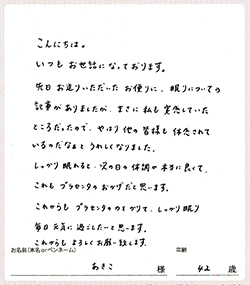 こんにちは。
いつもお世話になっております。
先日お送りいただいたお便りに、眠りについての
記事がありましたが、まさに私も実感していた
ところだったので、やはり他の皆様も体感されて
いるのだなとうれしくなりました。
しっかり眠れると、次の日の体調が本当に良くて、
これもプラセンタのおかげだと思います。
これからもプラセンタの力をかりて、しっかり眠り
毎日元気に過ごしたいと思います。
これからもよろしくお願い致します。
お名前(本名orペンネーム) 年齢
あきこ 様 42 歳